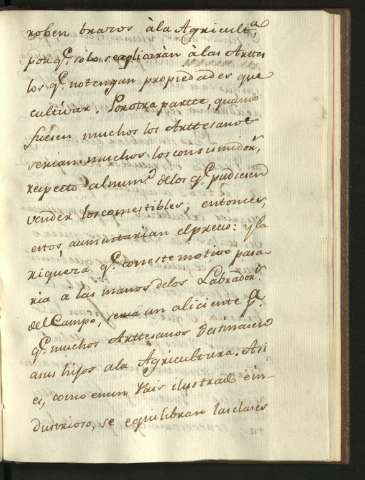 roben brazos à la Agricult.ª,
por q.ᵉ solo se aplicarán à las Arttes
los q.ᵉ no tengan propiedades que
cultivar. Por otra partte, quando
fuesen muchos los Arttesanos
serian muchos los consumidor.ˢ
respecto al num.º de los q.ᵉ pudiesen
vender los comestibles; entonces,
estos, aumentarian el precio: y la
riqueza q.ᵉ con este motivo pasa-
ria à las manos delos Labrador.ˢ
del Campo, seria un aliciente p.ª
q.ᵉ muchos Arttesanos destinasen
a sus hijos ala Agricultura. Asi
es, como en un Pais ilustrado è in-
dustrioso, se equilibran las clases